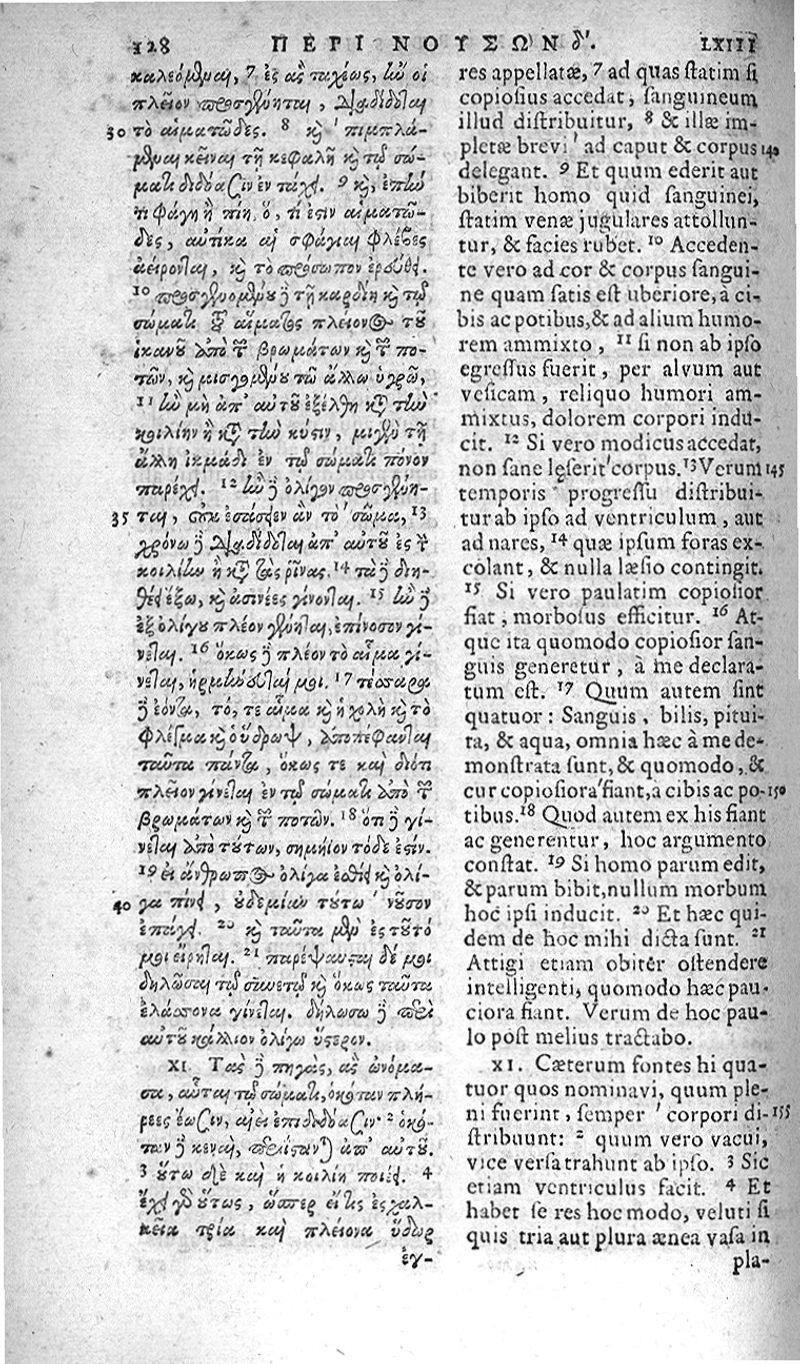 128 ΠΕΡΙ ΝΟΥΣΩΝ δ'. LXIII
καλεόμεναι, 7 ἐς ἃς ταχέως, ἢν οἱ
πλεῖον προσγένηται, διαδίδοται
30 τὸ αἱματῶδες. 8 καὶ ' πιμπλά-
μεναι κεῖναι τῇ κεφαλῇ καὶ τῷ σώ-
ματι διδόασιν ἐν τάχει. 9 καὶ, ἐπὴν
τι φάγῃ ἢ πίῃ, ὅ, τι ἐστιν αἱματῶ-
δες, αὐτίκα αἱ σφάγιαι φλέβες
ἀείρονται, καὶ τὸ πρόσωπον ἐρεύθει.
10 προσγενομένου δὲ τῇ καρδίῃ καὶ τῷ
σώματι τοῦ αἵματος πλείονος τοῦ
ἱκανοῦ ἀπὸ τῶν βρωμάτων καὶ τῶν πο-
τῶν, καὶ μισγομένου τῷ ἄλλῳ ὑγρῷ,
11 ἢν μὴ ἀπ' αὐτοῦ ἐξέλθῃ κατὰ τὴν
κοιλίην ἢ κατὰ τὴν κύστιν, μιγὲν τῇ
ἄλλῃ ἰκμάδι ἐν τῷ σώματι πόνον
παρέχει. 12 ἢν δὲ ὀλίγον προσγένη-
35 ται, οὐκ ἐσάσιεν ἂν τὸ ' σῶμα, 13
χρόνῳ δὲ διαδίδοται ἀπ' αὐτοῦ ἐς τὴν
κοιλίην ἢ κατὰ τὰς ῥῖνας. 14 τὰ δὲ διη-
θέει ἔξω, καὶ ἀσινέες γίνονται. 15 ἢν δὲ
ἐξ ὀλίγου πλέον γένηται, ἐπίνοσον γί-
νεται. 16 ὅκως δὲ πλέον τὸ αἷμα γί-
νεται, ἡρμήνευσταί μοι. 17 τέσσαρα
δὲ ἐόντα, τό, τε αἷμα καὶ ἡ χολὴ καὶ τὸ
φλέγμα καὶ ὁ ὕδρωψ, ἀποπέφανται
ταῦτα πάντα, ὅκως τε καὶ διότι
πλεῖον γίνεται ἐν τῷ σώματι ἀπὸ τῶν
βρωμάτων καὶ τῶν ποτῶν. 18 ὅτι δὲ γί-
νεται ἀπὸ τούτων, σημήϊον τόδε ἐστίν.
19 εἰ ἄνθρωπος ὀλίγα ἐσθίει καὶ ὀλί-
40 γα πίνει, οὐδεμίαν τούτῳ ' νοῦσον
ἐπάγει. 20 καὶ ταῦτα μὲν ἐς τοῦτό
μοι εἴρηται. 21 παρέψαυσται δέ μοι
δηλῶσαι τῷ συνετῷ καὶ ὅκως ταῦτα
ἐλάσσονα γίνεται. δηλώσω δὲ περὶ
αὐτοῦ κάλλιον ὀλίγῳ ὕστερον.
XI. Τὰς δὲ πηγὰς, ἃς ὠνόμα-
σα, αὗται τῷ σώματι, ὁκόταν πλή-
ρεες ἔωσιν, αἰεὶ ἐπιδιδόασιν· 2 ὁκό-
ταν δὲ κεναὶ, περιίσταν) ἀπ' αὐτοῦ.
3 οὕτω δὲ καὶ ἡ κοιλίη ποιέει. 4
ἔχει γὰρ οὕτως, ὥσπερ εἴ τις ἐς χαλ-
κεῖα τρία καὶ πλείονα ὕδωρ
ἐγ-
res appellatæ, 7 ad quas statim si
copiosius accedat, sanguineum
illud distribuitur, 8 & illæ im-
pletæ brevi ' ad caput & corpus 140
delegant. 9 Et quum ederit aut
biberit homo quid sanguinei,
statim venæ jugulares attollun-
tur, & facies rubet. 10 Acceden-
te vero ad cor & corpus sangui-
ne quam satis est uberiore, à ci-
bis ac potibus, & ad alium humo-
rem ammixto, 11 si non ab ipso
egressus fuerit, per alvum aut
vesicam, reliquo humori am-
mixtus, dolorem corpori indu-
cit. 12 Si vero modicus accedat,
non sane lęserit ' corpus. 13 Verum 145
temporis progressu distribui-
tur ab ipso ad ventriculum, aut
ad nares, 14 quæ ipsum foras ex-
colant, & nulla læsio contingit.
15 Si vero paulatim copiosior
fiat, morbosus efficitur. 16 At-
que ita quomodo copiosior san-
guis generetur, à me declara-
tum est. 17 Quum autem sint
quatuor: Sanguis, bilis, pitui-
ta, & aqua, omnia hæc à me de-
monstrata sunt, & quomodo, &
cur copiosiora ' fiant, à cibis ac po- 150
tibus. 18 Quod autem ex his fiant
ac generentur, hoc argumento
constat. 19 Si homo parum edit,
& parum bibit, nullum morbum
hoc ipsi inducit. 20 Et hæc qui-
dem de hoc mihi dicta sunt. 21
Attigi etiam obiter ostendere
intelligenti, quomodo hæc pau-
ciora fiant. Verum de hoc pau-
lo post melius tractabo.
XI. Cæterum fontes hi qua-
tuor quos nominavi, quum ple-
ni fuerint, semper ' corpori di- 155
stribuunt: 2 quum vero vacui,
vice versa trahunt ab ipso. 3 Sic
etiam ventriculus facit. 4 Et
habet se res hoc modo, veluti si
quis tria aut plura ænea vasa in
pla-